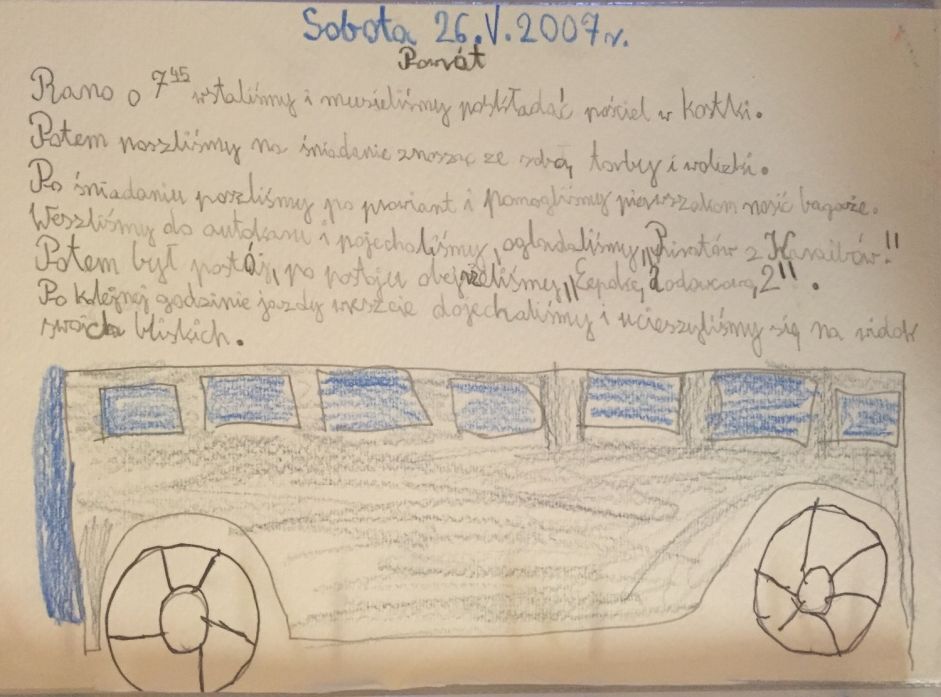 Sobota 26.V.2007r.
Powrót
Rano o 7⁴⁵ wstaliśmy i musieliśmy poskładać pościel w kostki.
Potem poszliśmy na śniadanie znosząc ze sobą torby i walizki.
Po śniadaniu poszliśmy po prowiant i pomogliśmy pierwszakom nosić bagaże.
Weszliśmy do autokaru i pojechaliśmy, oglądaliśmy „Piratów z Karaibów".
Potem był postój, po postoju obejrzeliśmy „Epokę Lodowcową 2".
Po kolejnej godzinie jazdy wreszcie dojechaliśmy i ucieszyliśmy się na widok
swoich bliskich.